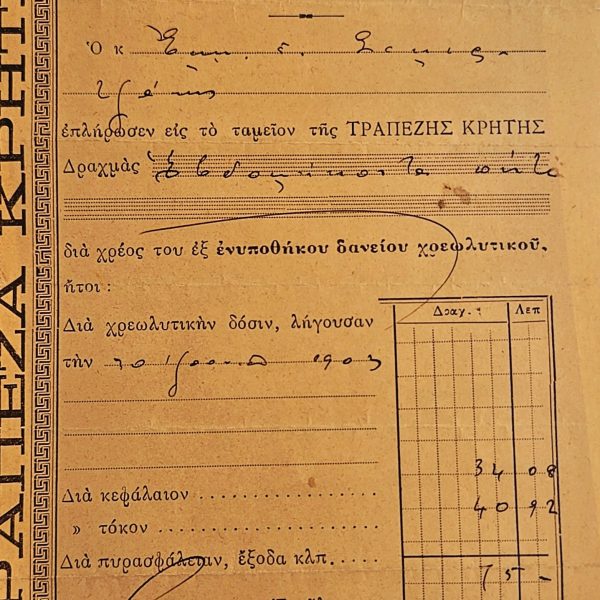 ΤΡΑΠΕΖΑ ΚΡΗΤΗ
Ὁ κ
ἐπλήρωσεν εἰς τὸ ταμεῖον τῆς ΤΡΑΠΕΖΗΣ ΚΡΗΤΗΣ
Δραχμὰς Ἑβδομήκοντα πέντε
διὰ χρέος του ἐξ ἐνυποθήκου δανείου χρεωλυτικοῦ,
ἤτοι :
Δραχ. Λεπ
Διὰ χρεωλυτικὴν δόσιν, λήγουσαν
τὴν
Διὰ κεφάλαιον .................. 34 08
» τόκον ...................... 40 92
Διὰ πυρασφάλειαν, ἔξοδα κλπ..... 75 —